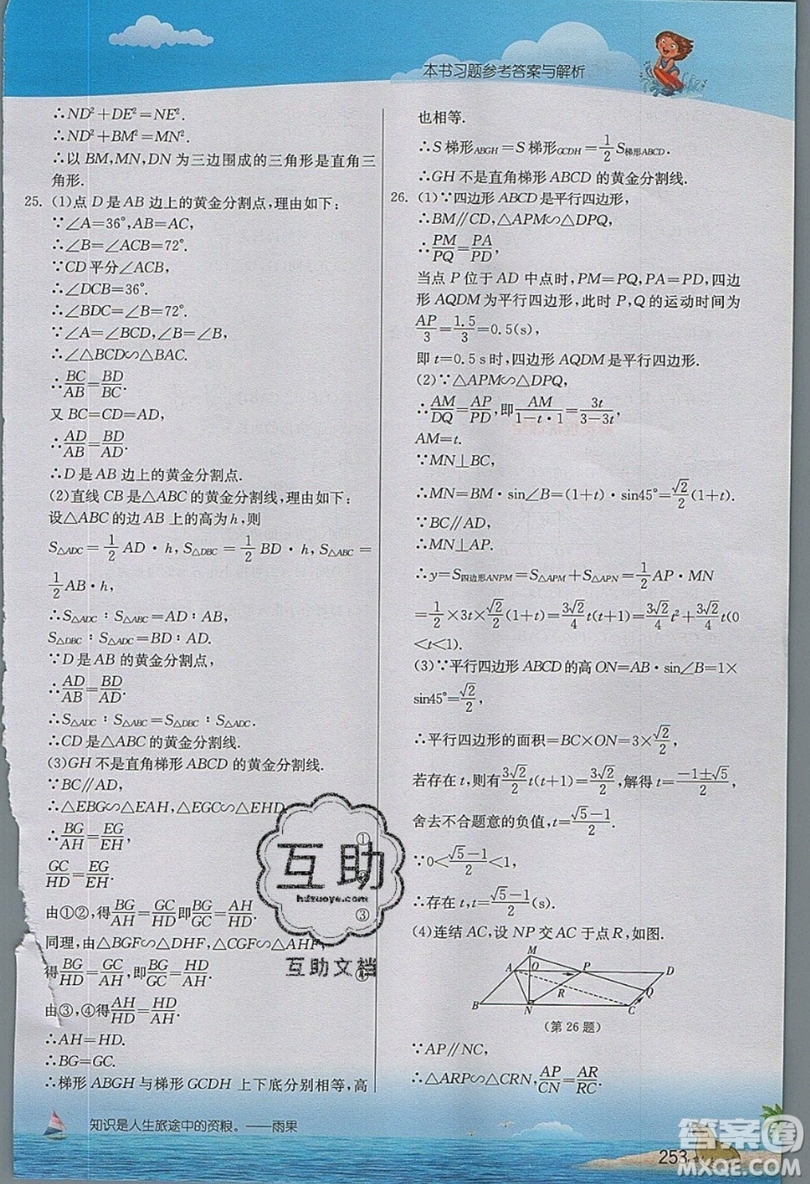 本书习题参考答案与解析
∴ND²+DE²=NE².
∴ND²+BM²=MN².
∴以 BM,MN,DN 为三边围成的三角形是直角三
角形.
25. (1)点 D 是 AB 边上的黄金分割点,理由如下:
∵∠A=36°,AB=AC,
∴∠B=∠ACB=72°.
∵CD 平分∠ACB,
∴∠DCB=36°.
∴∠BDC=∠B=72°.
∵∠A=∠BCD,∠B=∠B,
∴△BCD∽△BAC.
∴BC/AB=BD/BC.
又 BC=CD=AD,
∴AD/AB=BD/AD.
∴D 是 AB 边上的黄金分割点.
(2)直线 CB 是△ABC 的黄金分割线,理由如下:
设△ABC 的边 AB 上的高为 h,则
S△ADC=1/2 AD·h,S△DBC=1/2 BD·h,S△ABC=
1/2 AB·h,
∴S△ADC∶S△ABC=AD∶AB,
S△DBC∶S△ADC=BD∶AD.
∵D 是 AB 的黄金分割点,
∴AD/AB=BD/AD.
∴S△ADC∶S△ABC=S△DBC∶S△ADC.
∴CD 是△ABC 的黄金分割线.
(3)GH 不是直角梯形 ABCD 的黄金分割线.
∵BC∥AD,
∴△EBG∽△EAH,△EGC∽△EHD.
∴BG/AH=EG/EH. ①
GC/HD=EG/EH.
由①②,得BG/AH=GC/HD即BG/GC=AH/HD. ③
同理,由△BGF∽△DHF,△CGF∽△AHF,
得BG/HD=GC/AH,即BG/GC=HD/AH. ④
由③,④得AH/HD=HD/AH.
∴AH=HD.
∴BG=GC.
∴梯形 ABGH 与梯形 GCDH 上下底分别相等,高
也相等.
∴S 梯形ABGH=S 梯形GCDH=1/2 S梯形ABCD.
∴GH 不是直角梯形 ABCD 的黄金分割线.
26. (1)∵四边形 ABCD 是平行四边形,
∴BM∥CD,△APM∽△DPQ,
∴PM/PQ=PA/PD,
当点 P 位于 AD 中点时,PM=PQ,PA=PD,四边
形 AQDM 为平行四边形,此时 P,Q 的运动时间为
AP/3=1.5/3=0.5(s),
即 t=0.5 s时,四边形 AQDM 是平行四边形.
(2)∵△APM∽△DPQ,
∴AM/DQ=AP/PD,即AM/(1-t·1)=3t/(3-3t)
AM=t.
∵MN⊥BC,
∴MN=BM·sin∠B=(1+t)·sin45°=√2/2(1+t).
∵BC∥AD,
∴MN⊥AP.
∴y=S四边形ANPM=S△APM+S△APN=1/2 AP·MN
=1/2×3t×√2/2(1+t)=3√2/4 t(t+1)=3√2/4 t²+3√2/4 t(0
<t<1).
(3)∵平行四边形 ABCD 的高 ON=AB·B=1×
sin45°=√2/2,
∴平行四边形的面积=BC×ON=3×√2/2.
若存在 t,则有3√2/2 t(t+1)=3√2/2,解得 t=(-1±√5)/2,
舍去不合题意的负值,t=(√5-1)/2.
∵0<(√5-1)/2<1,
∴存在,t=(√5-1)/2(s).
(4)连结 AC,设 NP 交 AC 于点 R,如图.
M
A O P D
R Q
B N C
(第 26 题)
∵AP∥NC,
∴△ARP∽△CRN,AP/CN=AR/RC.
互助
hdzuoye.com
互助文档
知识是人生旅途中的资粮。——雨果
253
答案圈
MXQE.COM